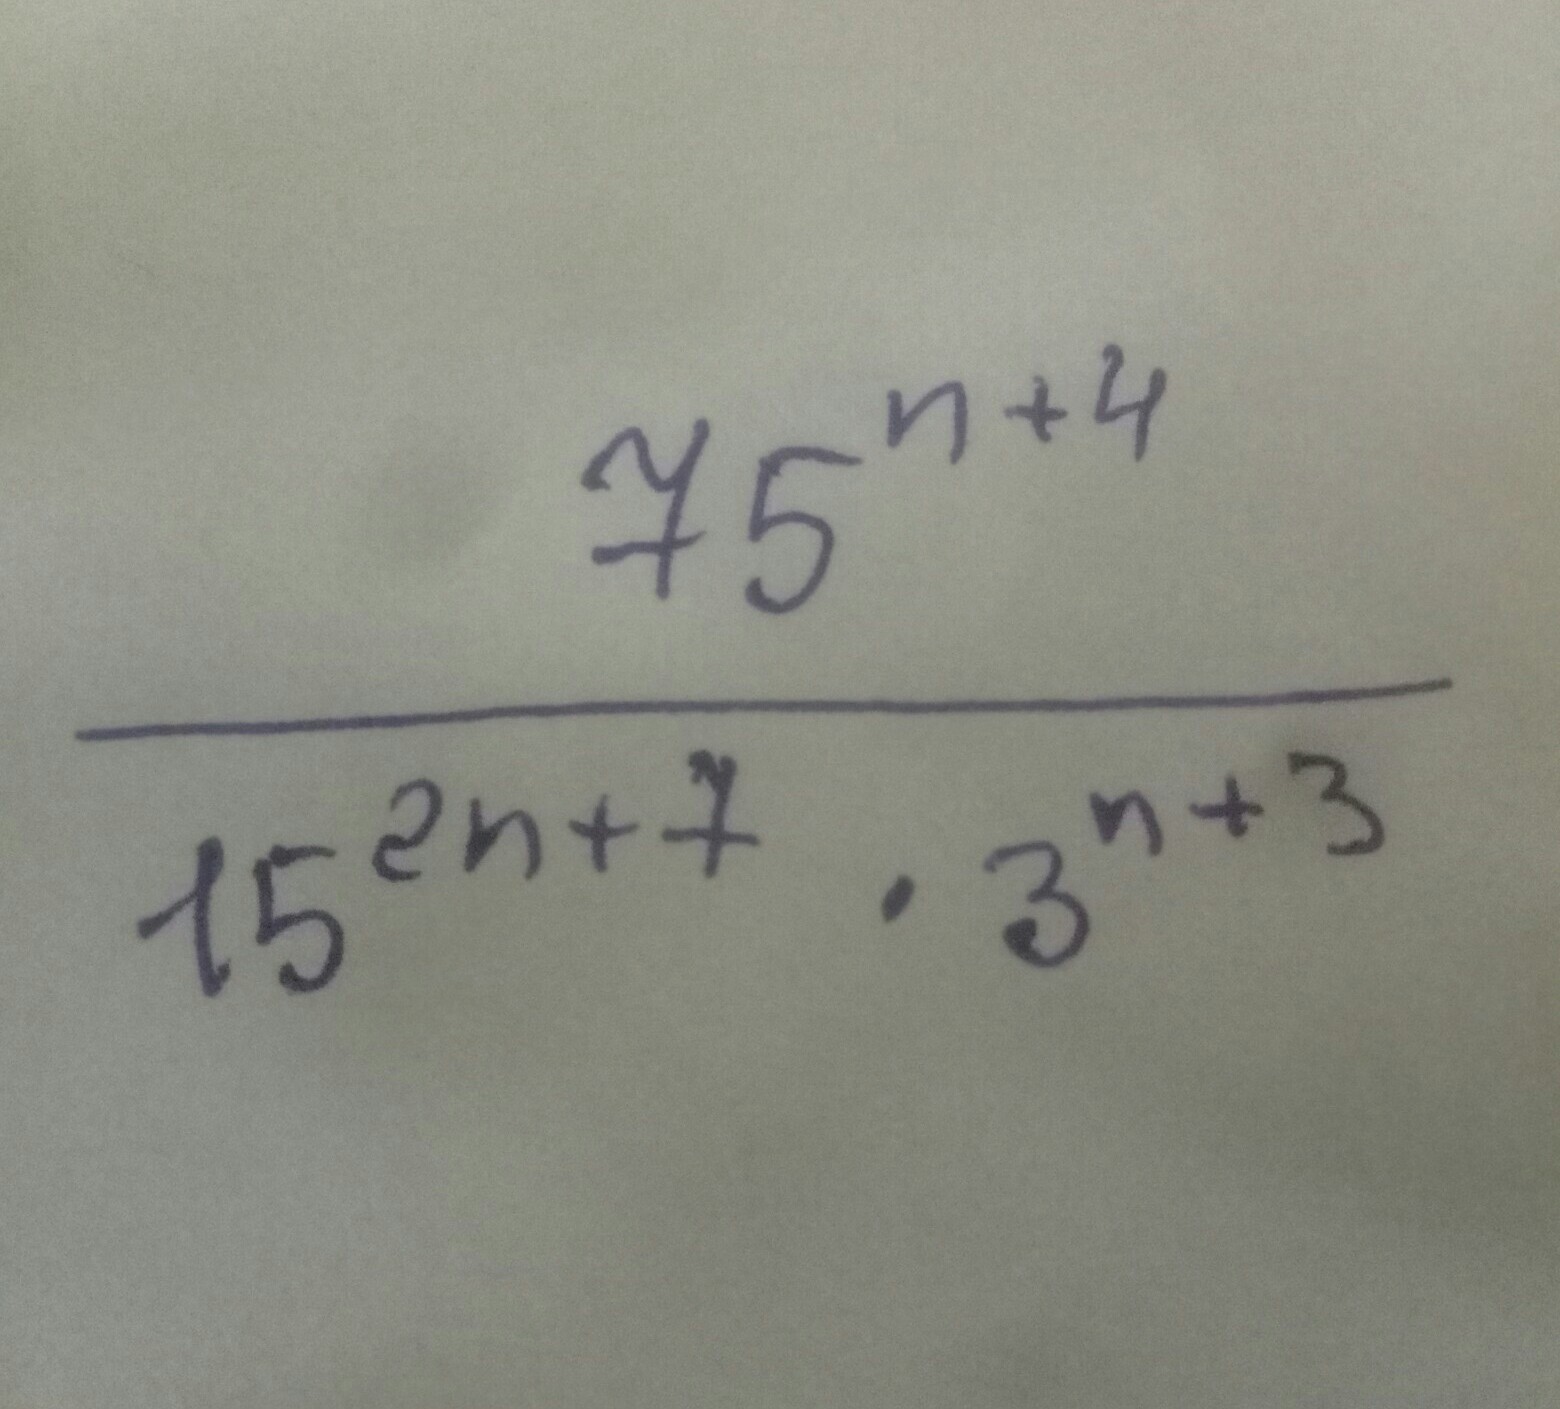 75^{n+4}
15^{2n+7} · 3^{n+3}